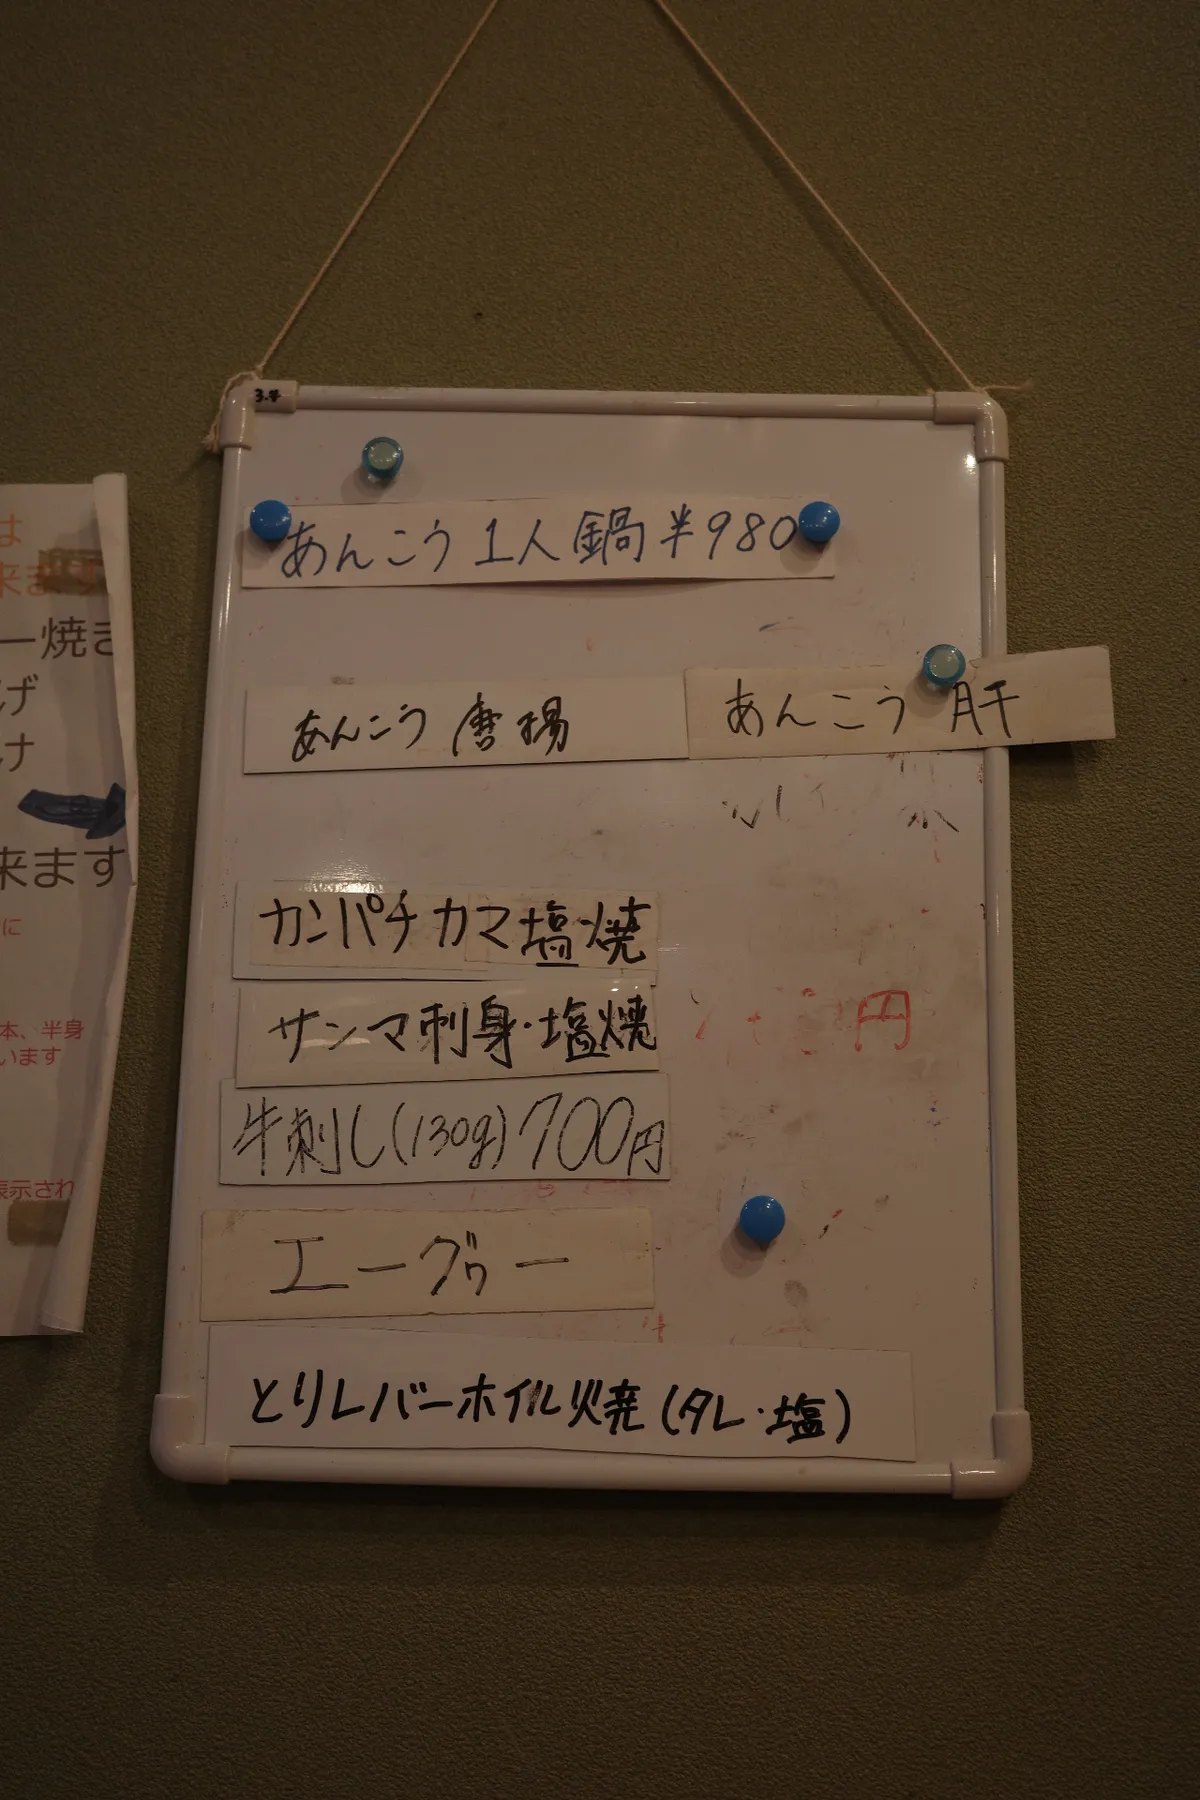 3.4
あんこう 1人鍋 ¥980
あんこう 唐揚
あんこう 肝
カンパチカマ塩焼
サンマ刺身・塩焼
円
牛刺し(130g)700円
エーグゥー
とりレバーホイル焼(タレ・塩)
は
来ます
ー焼き
げ
け
来ます
に
本、半身
います
表示され